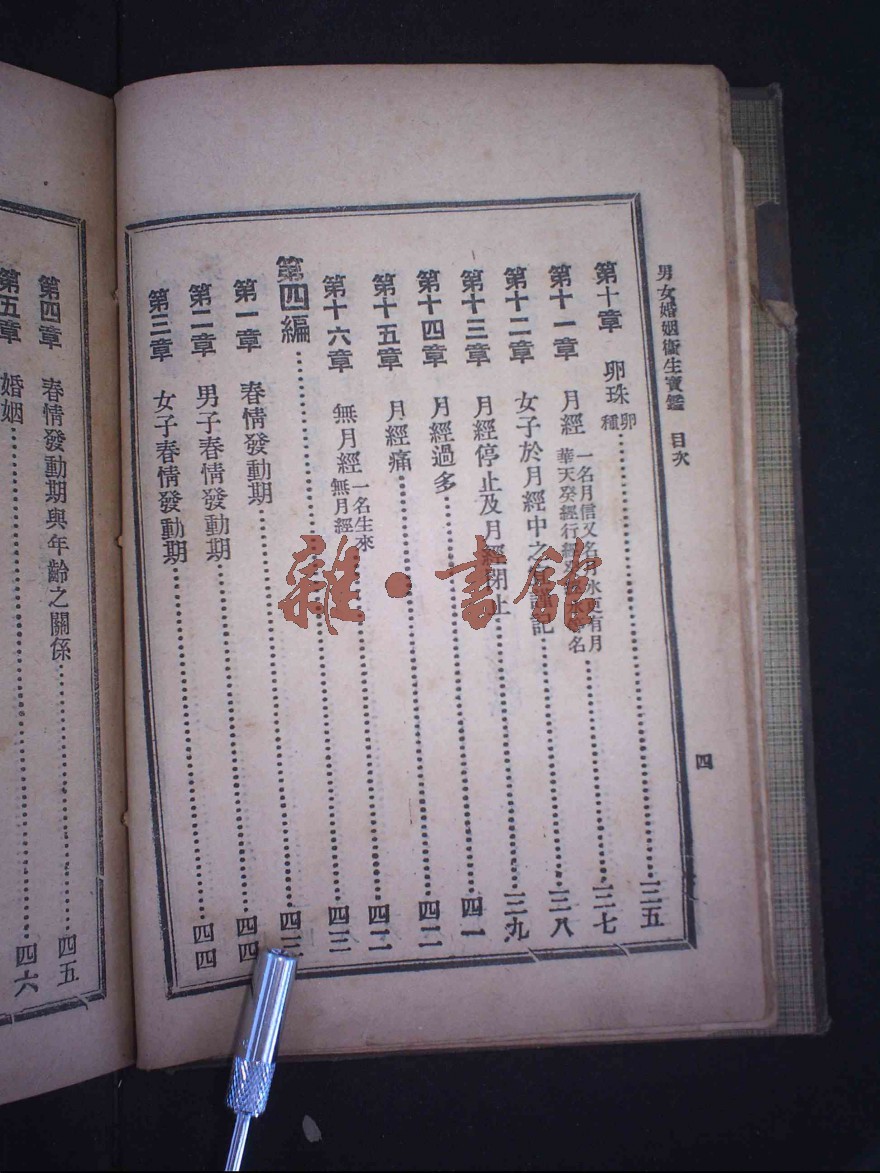 男女婚姻衞生寶鑑 目次
四
第十章 卵珠 卵種 三五
第十一章 月經 一名月信又名 水 有月華天癸經行 名 三七
第十二章 女子於月經中之 記 三八
第十三章 月經停止及月經閉止 三九
第十四章 月經過多 四一
第十五章 月經痛 四二
第十六章 無月經 一名生來無月經 四二
第四編 四三
第一章 春情發動期 四三
第二章 男子春情發動期 四四
第三章 女子春情發動期 四四
第四章 春情發動期與年齡之關係 四五
第五章 婚姻 四六
雜·書館